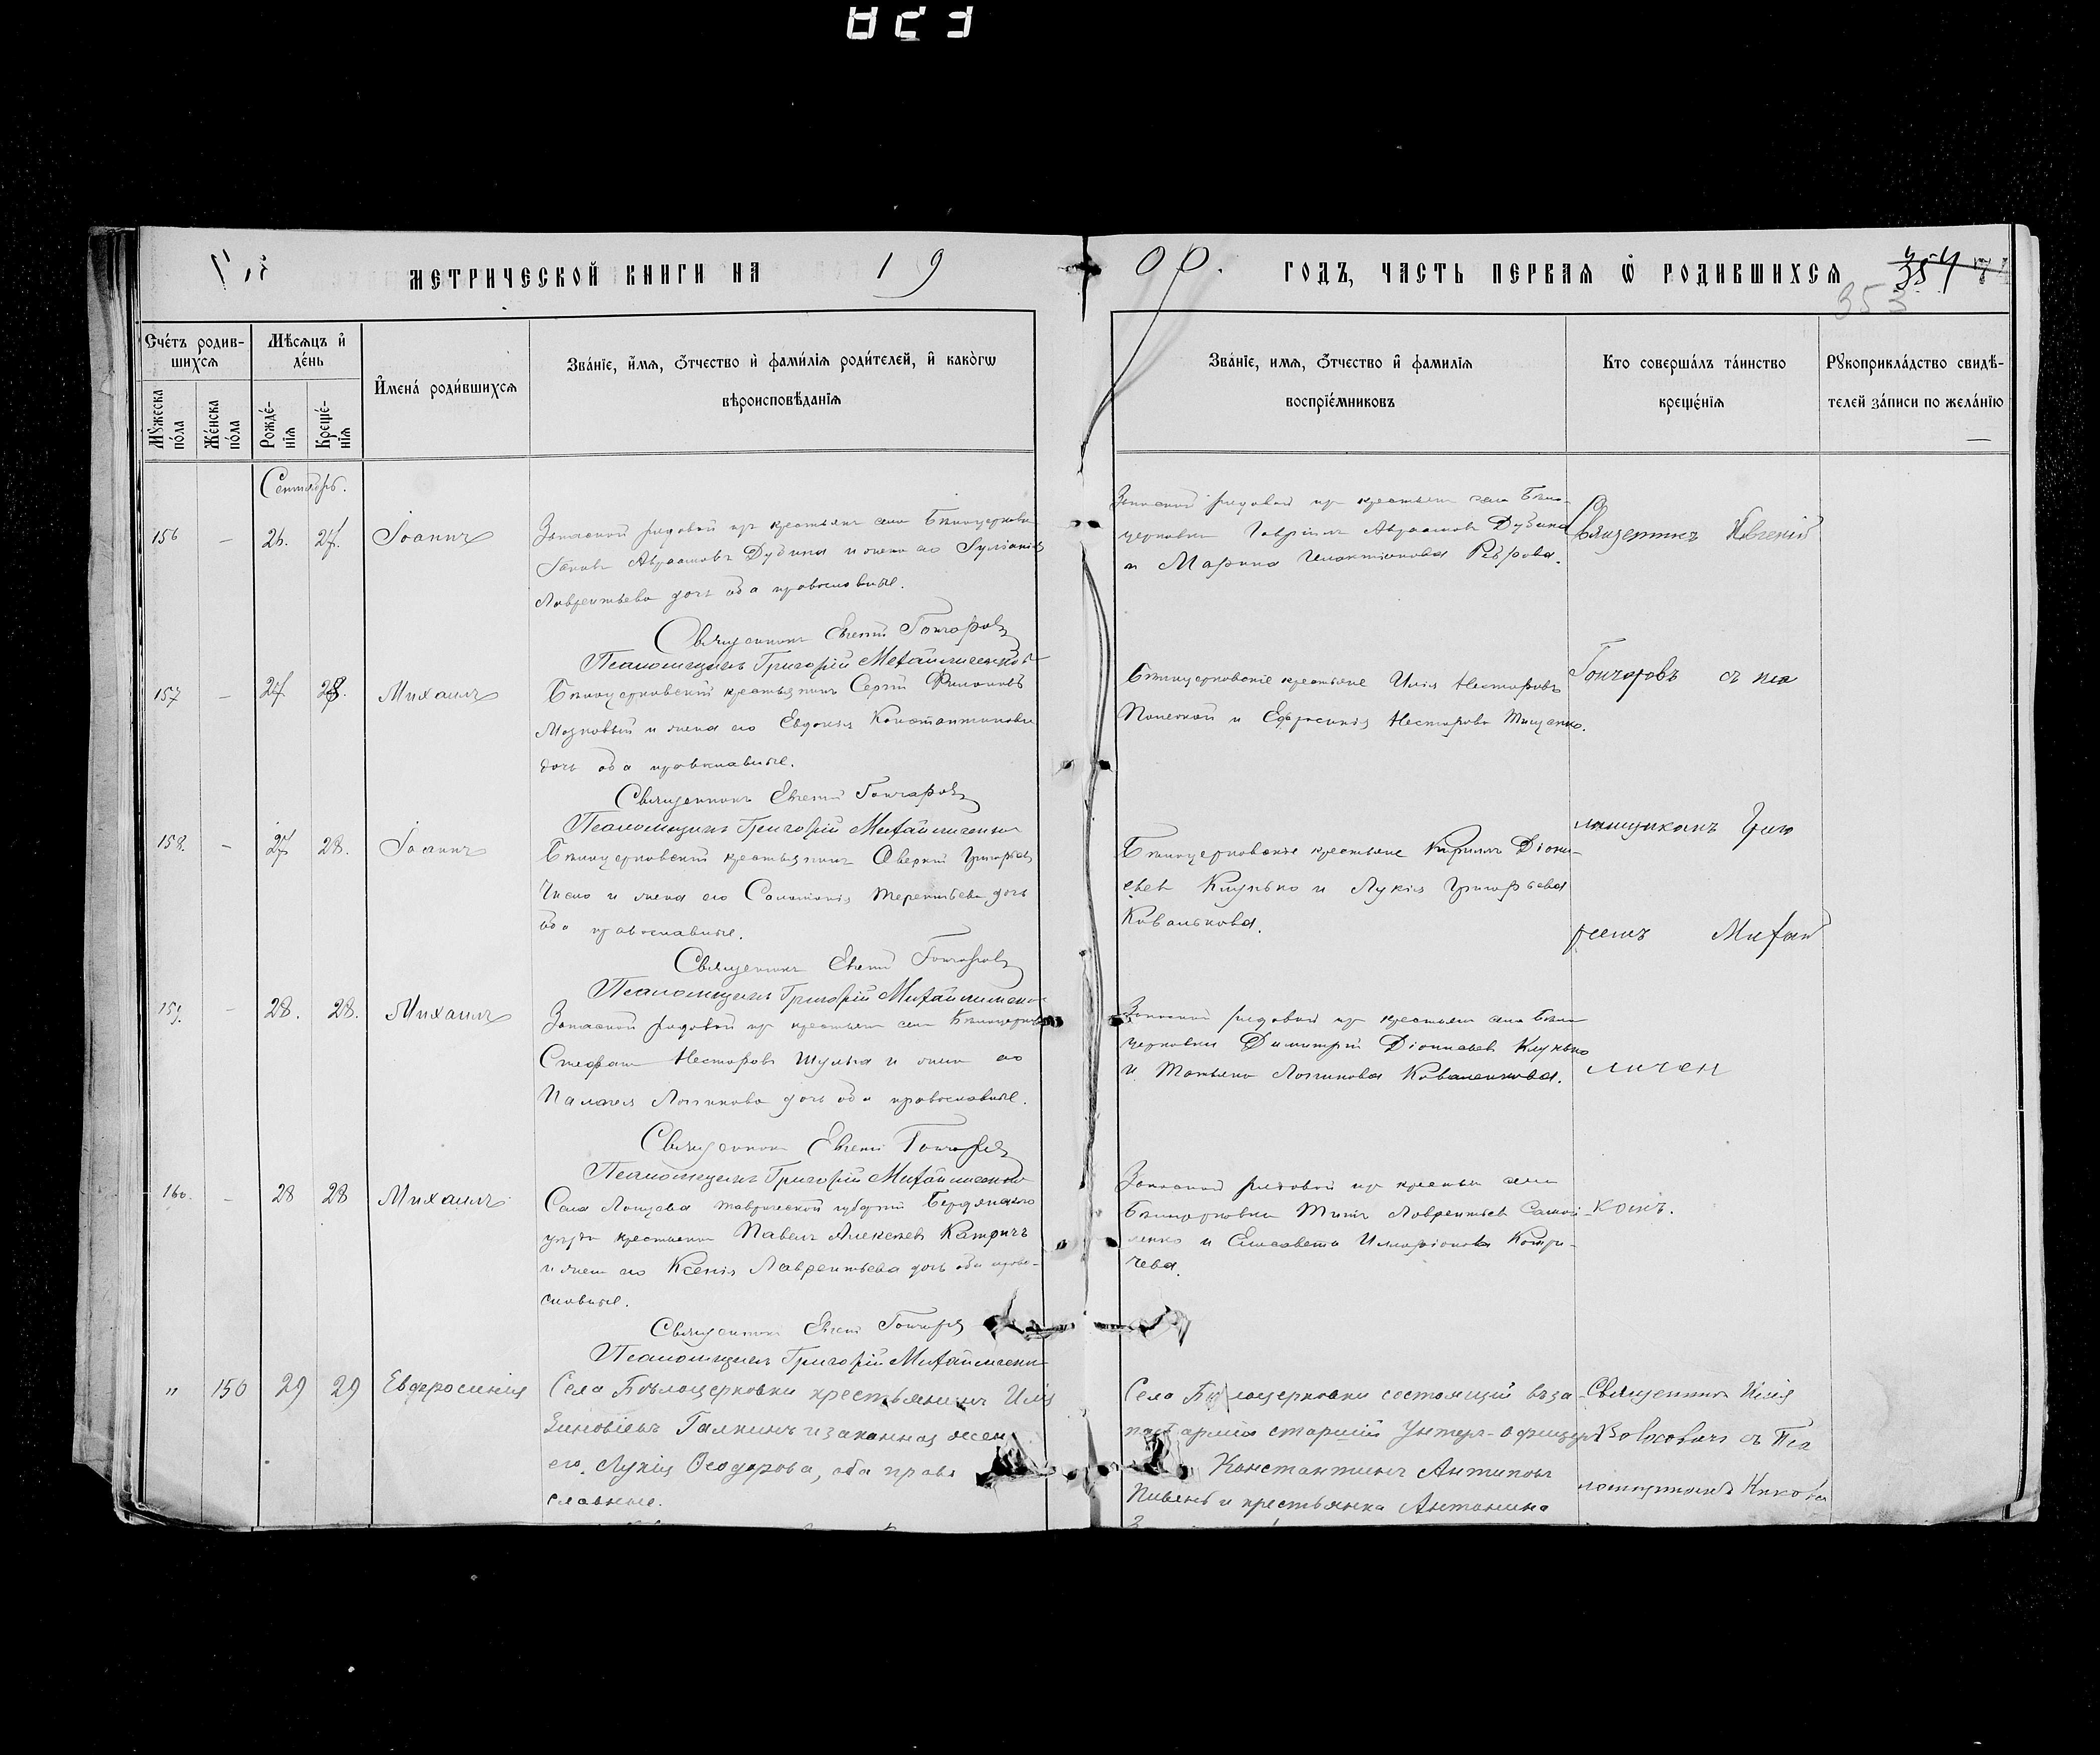 МЕТРИЧЕСКОЙ КНИГИ НА 19
00. ГОДЪ, ЧАСТЬ ПЕРВАЯ Ѡ РОДИВШИХСЯ 354
353
Сче́тъ родив-
шихся
Мѣсяцъ и҆
де́нь
Мꙋжеска
по́ла
Же́нска
по́ла
Рожде́-
нїя
Креще́-
нїя
И҆мена́ роди́вшихся
Зва́нїе, и҆́мя, ѻ҆́тчество и҆ фами́лїя роди́телей, и҆ како́гѡ
вѣроисповѣ́данїя
Зва́нїе, имя, ѻ҆́тчество и҆ фамилїя
воспрїе́мниковъ
Кто соверша́лъ та́инство
креще́нїя
Рꙋкоприкла́дство свидѣ́-
телей за́писи по жела́нїю
Сентябрь.
156 – 26. 27. Іоаннъ
Запасной рядовой изъ крестьянъ села Бѣлоцерковки
Іаковъ Авраамовъ Дубина и жена его Іуліанія
Лаврентьева дочь оба православные.
Священникъ Евгеній Гончаровъ
Псаломщикъ Григорій Михайличенко
Запасной рядовой изъ крестьянъ села Бѣло-
церковки Гавріилъ Авраамовъ Дубина
и Марина Реброва.
Священникъ Евгеній
157 – 27. 28. Михаилъ
Бѣлоцерковскій крестьянинъ Сергій Филоновъ
Мозковый и жена его Евдокія Константинова
дочь оба православные.
Священникъ Евгеній Гончаровъ
Псаломщикъ Григорій Михайличенко
Бѣлоцерковскіе крестьяне Илія Несторовъ
и Ефросинія Несторова Тищенко.
Гончаровъ съ пса
158. – 27 28. Іоаннъ
Бѣлоцерковскій крестьянинъ Аверкій Григорьевъ
и жена его Соломонія Терентьева дочь
оба православные.
Священникъ Евгеній Гончаровъ
Псаломщикъ Григорій Михайличенко
Бѣлоцерковскіе крестьяне Кириллъ Діони-
сьевъ Клунько и Лукія Григорьева
Ковалькова.
ломщикомъ Григо
ріемъ Михай
159. – 28. 28. Михаилъ
Запасной рядовой изъ крестьянъ села Бѣлоцерковки
Стефанъ Несторовъ Шульга и жена его
Логинова дочь оба православные.
Священникъ Евгеній Гончаровъ
Псаломщикъ Григорій Михайличенко
Запасной рядовой изъ крестьянъ села Бѣло
церковки Димитрій Діонисьевъ Клунько
и Татьяна Логинова Коваленкова.
личен
160. – 28 28 Михаилъ
Села Таврической губерніи Бердянскаго
уѣзда крестьянинъ Павелъ Алексѣевъ Катричъ
и жена его Ксенія Лаврентьева дочь оба право-
славные.
Священникъ Евгеній Гончаровъ
Псаломщикъ Григорій Михайличенко
Запасной рядовой изъ крестьянъ села
Бѣлоцерковки Титъ Лаврентьевъ Самой-
ленко и Елисавета Илларіонова Катри-
чева.
комъ.
" 150 29 29 Евфросинія
Села Бѣлоцерковки крестьянинъ Илія
Зиновіевъ Галкинъ и законная жена
его Лукія Ѳеодорова, оба право
славные.
Села Бѣлоцерковки состоящій въ за-
пасѣ арміи старшій Унтеръ-офицеръ
Константинъ Антиповъ
Пивень и крестьянка Антонина
Священникъ Илія
съ Пса
ломщикомъ